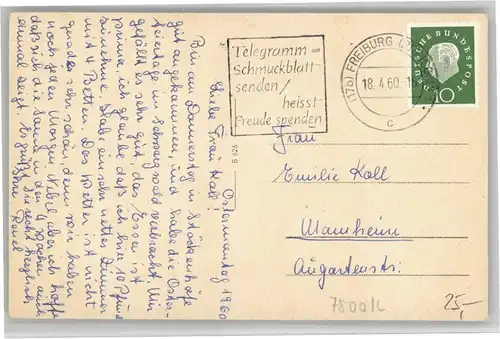 Ostermontag 1960
Liebe Frau Kall!
Bin am Donnerstag in Stückenhöfe
gut angekommen, und habe die Oster-
feiertage im Schwarzwald verbracht. Mir
gefällt es sehr gut, das Essen ist
prima, ich glaube daß ich hier 10 Pfund
zunehme. Habe ein sehr nettes Zimmer
mit 4 Betten. Das Wetter ist nicht
gerade sehr schön, denn wir haben
noch jeden Morgen Nebel, aber ich hoffe
daß sich die Sonne in den 4 Wochen auch
einmal zeigt. Es grüßt Sie recht herzlich
Ihre
Telegramm=
Schmuckblatt-
senden /
heisst
Freude spenden
(17b) FREIBURG
18.4.60
c
DEUTSCHE BUNDESPOST
10
Frau
Emilie Kall
Mannheim
Augartenstr.
7800/L
25,-